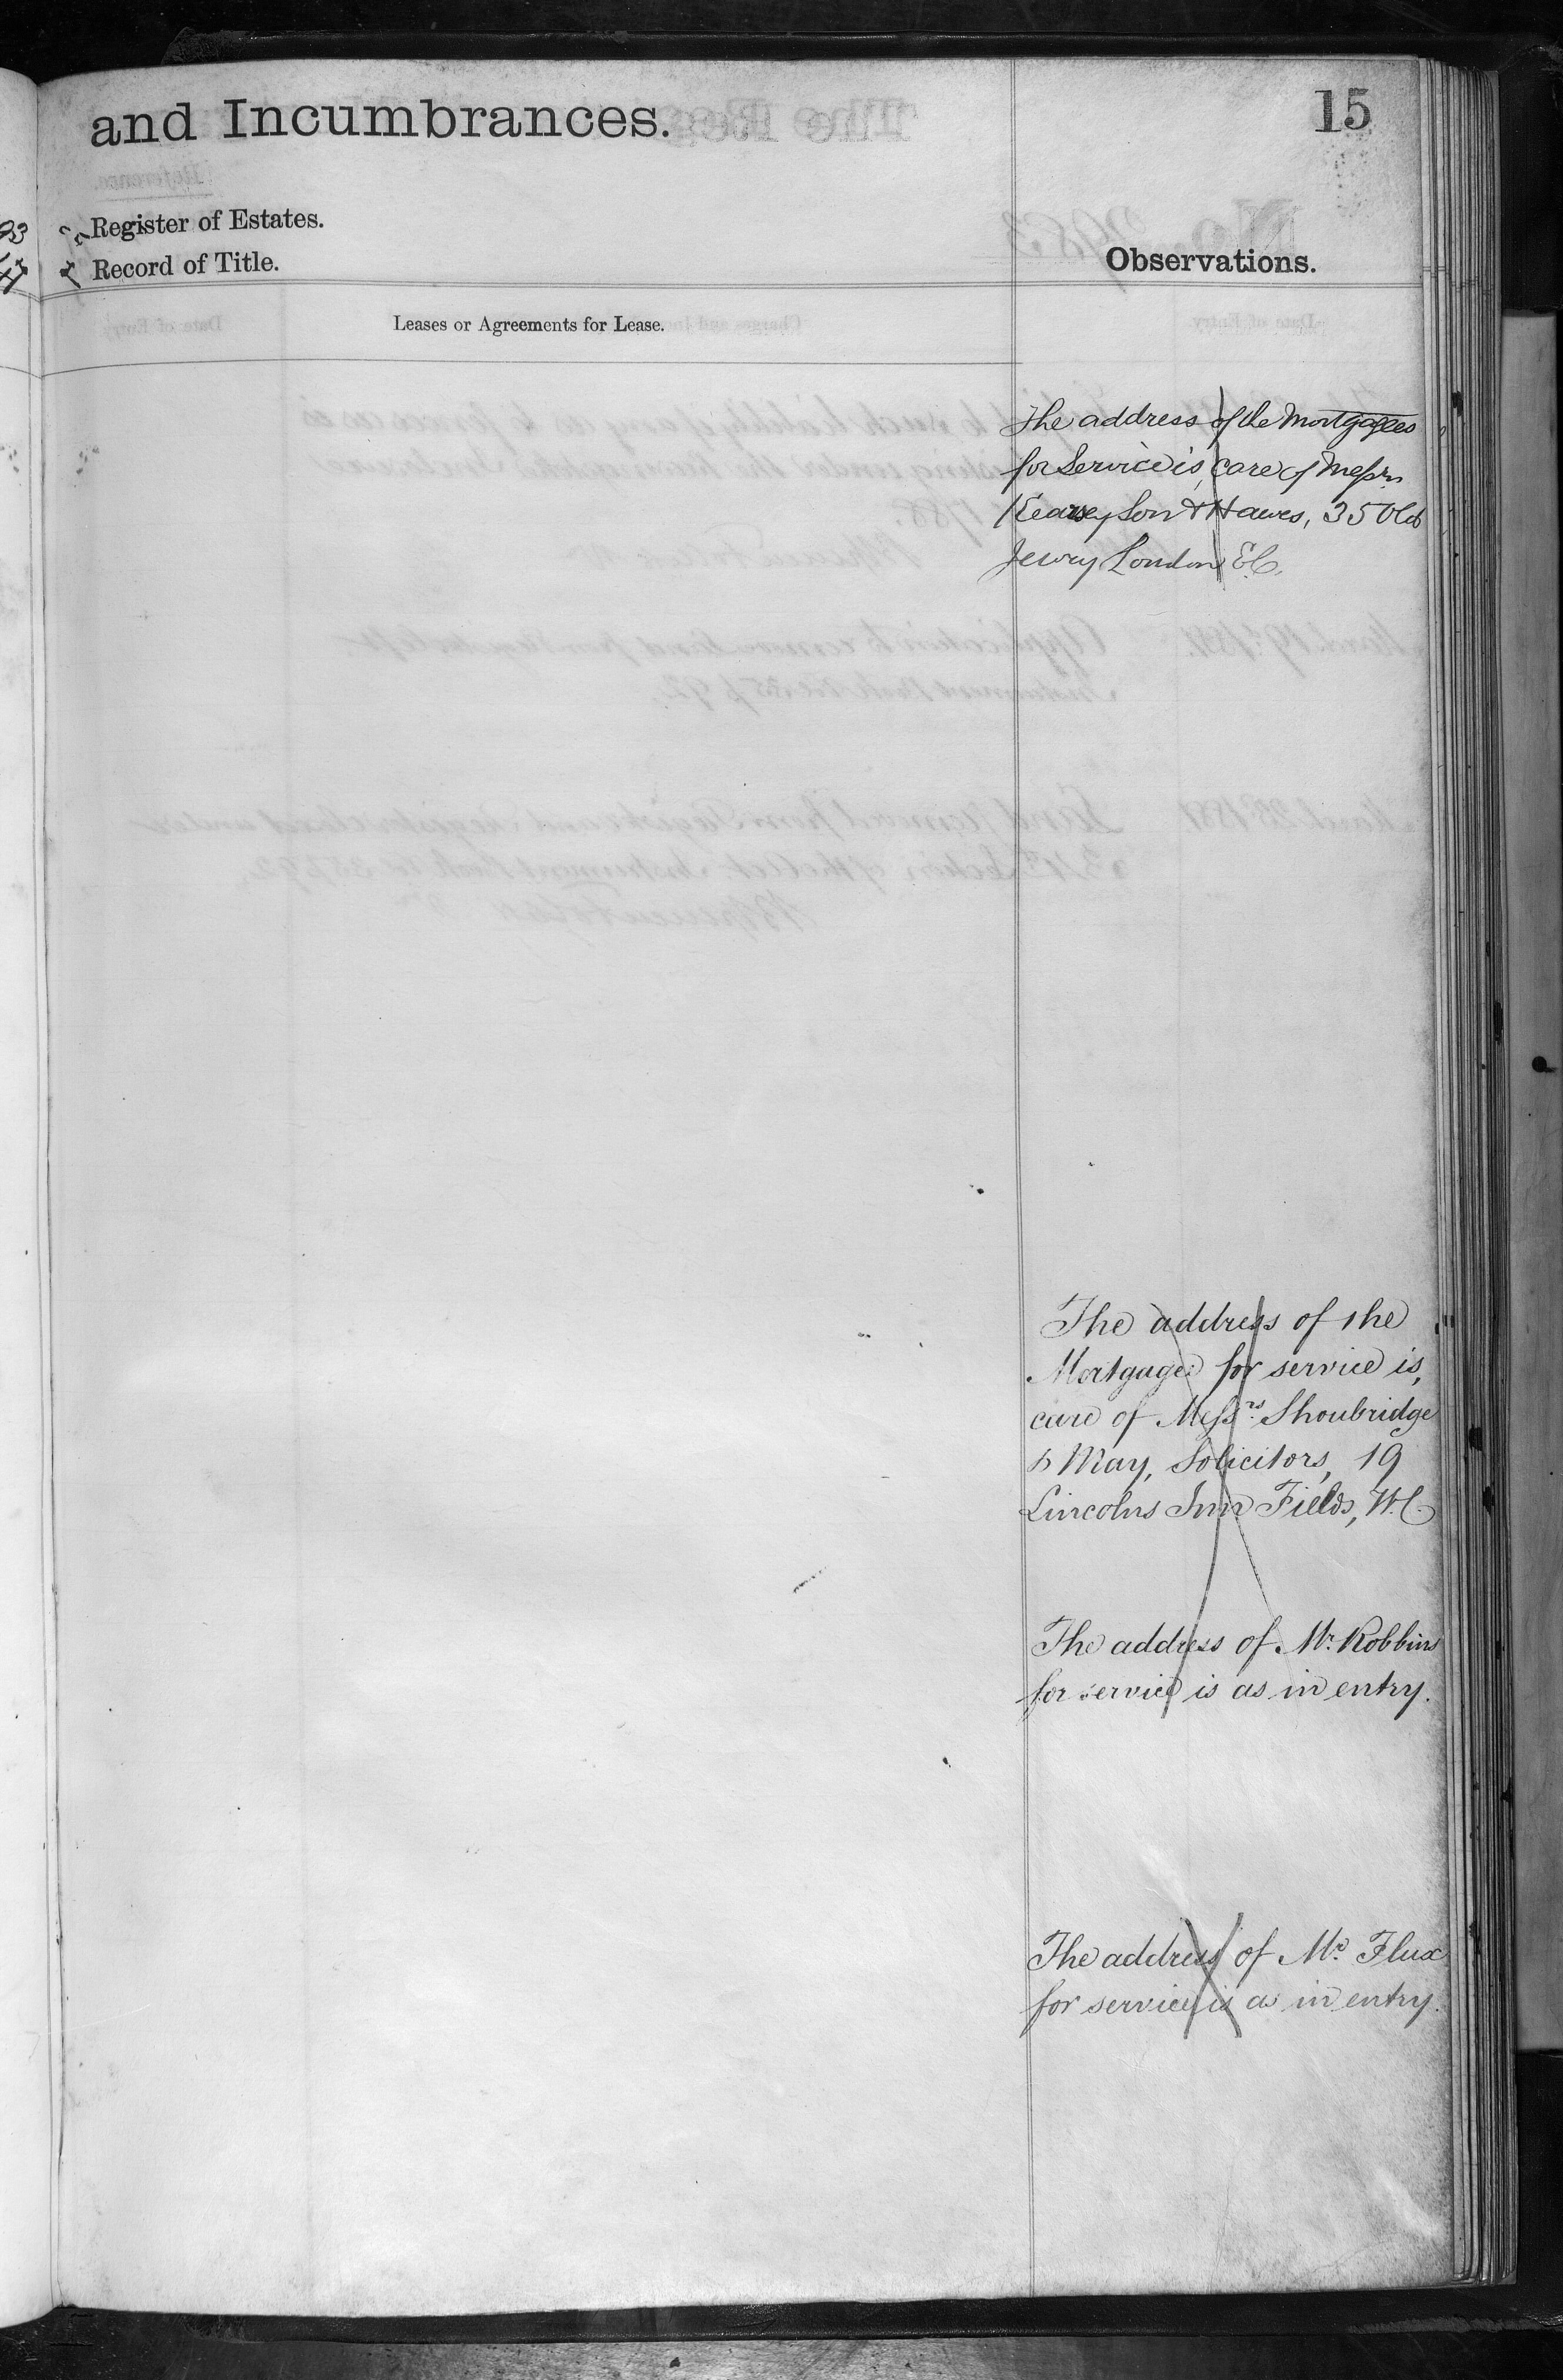 and Incumbrances.
15
Register of Estates.
Record of Title.
Observations.
Leases or Agreements for Lease.
The address of the Mortgagees
for Service is, care of Messrs
Kearsey Son & Hawes, 35 Old
Jewry London E.C.
The address of the
Mortgagee for service is,
care of Messrs. Shoubridge
& May, Solicitors, 19
Lincolns Inn Fields, W.C.
The address of Mr. Robbins
for service is as in entry.
The address of Mr. Flux
for service is as in entry.